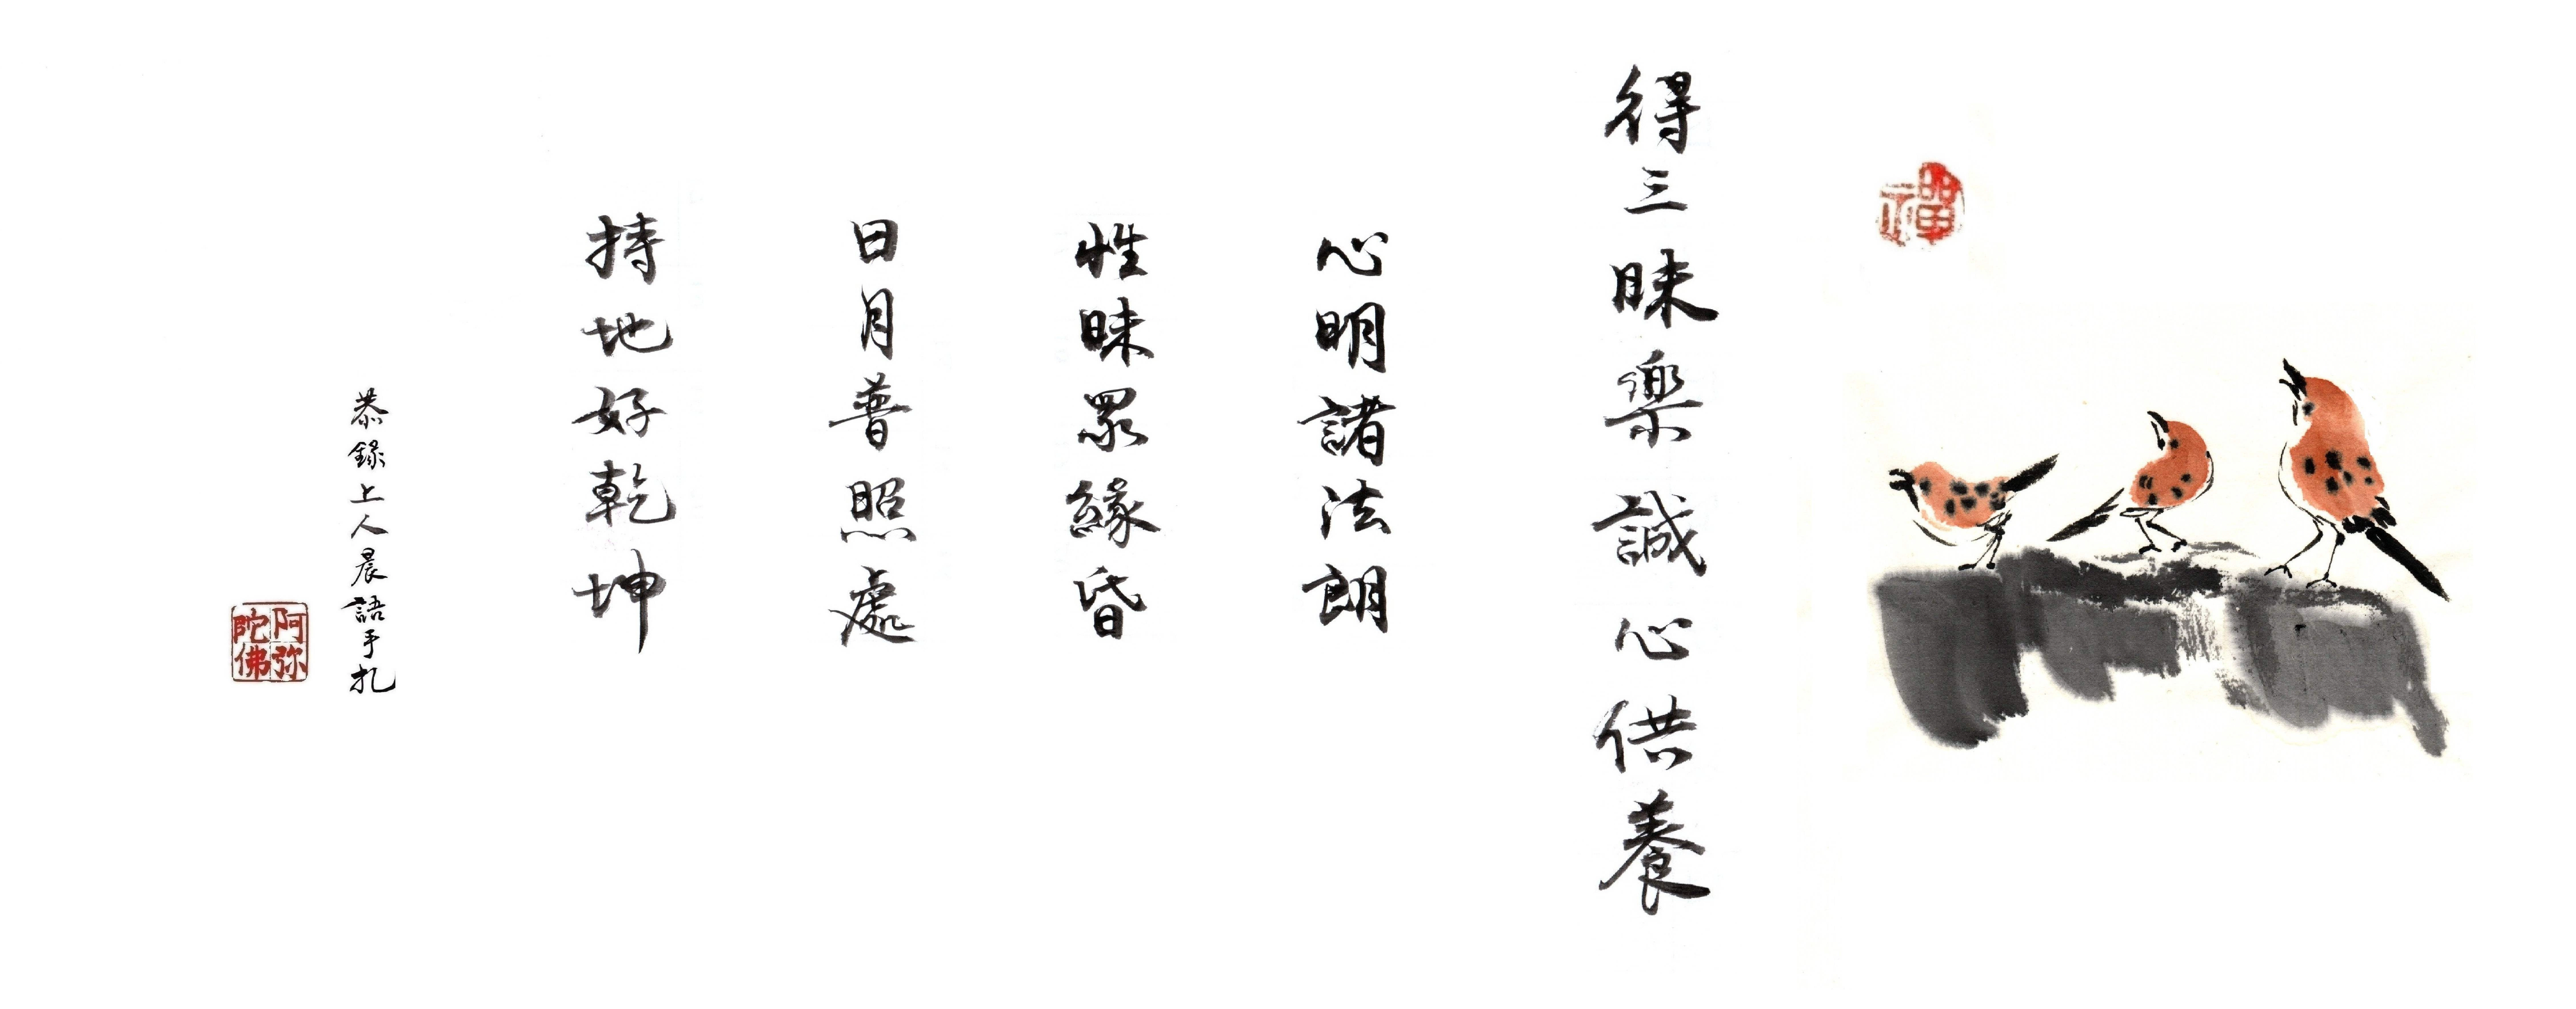 禪
得三昧樂誠心供養
心明諸法朗
性昧眾緣昏
日月普照處
持地好乾坤
恭錄上人晨語手扎
阿弥陀佛